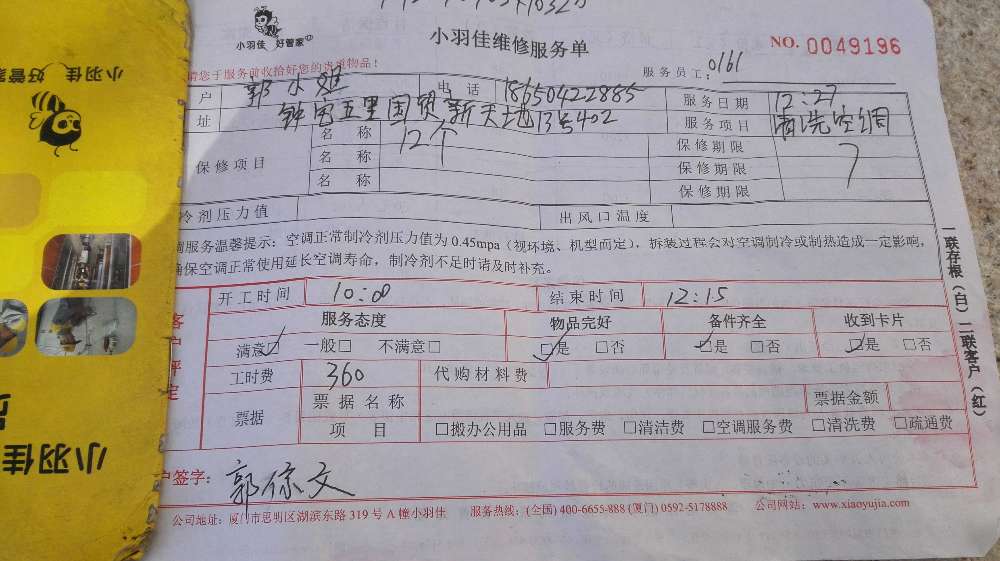 小羽佳 好管家
小羽佳维修服务单
NO. 0049196
请您于服务前收拾好您的贵重物品！
服务员工：0161
户 郭小姐 电话 18650422885 服务日期 12:27
址 钟宅五里国贸新天地13号402 服务项目 清洗空调
保修项目
名称 12个 保修期限
名称 保修期限
名称 保修期限
冷剂压力值 出风口温度
调服务温馨提示：空调正常制冷剂压力值为 0.45mpa（视环境、机型而定），拆装过程会对空调制冷或制热造成一定影响，
确保空调正常使用延长空调寿命，制冷剂不足时请及时补充。
开工时间 10:00 结束时间 12:15
服务态度 物品完好 备件齐全 收到卡片
满意☑ 一般□ 不满意□ ☑是 □否 ☑是 □否 ☑是 □否
工时费 360 代购材料费
票据 票据名称 票据金额
项目 □搬办公用品 □服务费 □清洁费 □空调服务费 □清洗费 □疏通费
户签字：
公司地址：厦门市思明区湖滨东路 319 号 A 幢小羽佳 服务热线：(全国) 400-6655-888 (厦门) 0592-5178888 公司网站：www.xiaoyujia.com
一联存根（白）二联客户（红）
小羽佳 好管家
小羽佳